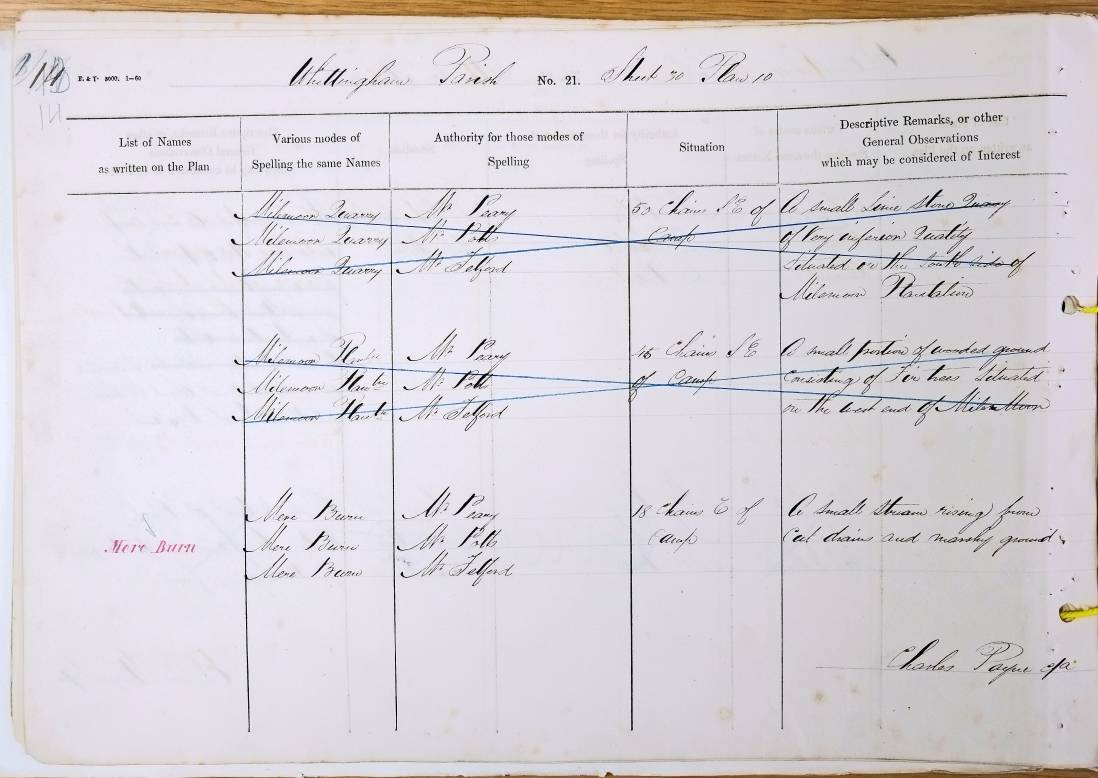 14
F. & T. 3000. 1–60
Whittingham Parish No. 21. Sheet 30 Plan 10
14
List of Names
as written on the Plan
Various modes of
Spelling the same Names
Authority for those modes of
Spelling
Situation
Descriptive Remarks, or other
General Observations
which may be considered of Interest
Milemoon Quarry Mr Peary 50 Chains S E of A small Lime stone Quarry
Milemoon Quarry Mr Potts Camp of Very inferior Quality
Milemoon Quarry Mr Telford Situated on the South side of
Milemoon Plantation
Milemoon Mr Peary 45 Chains S E A small portion of wooded ground
Milemoon Mr Potts of Camp Consisting of Fir trees Situated
Milemoon Mr Telford on the west end of Mile Moon
Mere Burn Mr Peary 18 Chains E of A small stream rising from
Mere Burn Mere Burn Mr Potts Camp Cut drains and marshy ground
Mere Burn Mr Telford
Charles Payne c/a